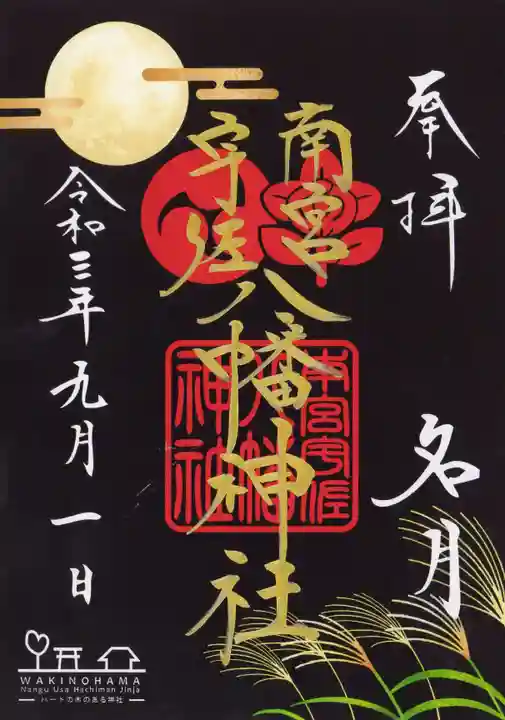 奉拝
名月
南宮
宇佐八幡神社
本宮宇佐
八幡
神社
令和三年九月一日
WAKINOHAMA
Nangu Usa Hachiman Jinja
ハートの木のある神社